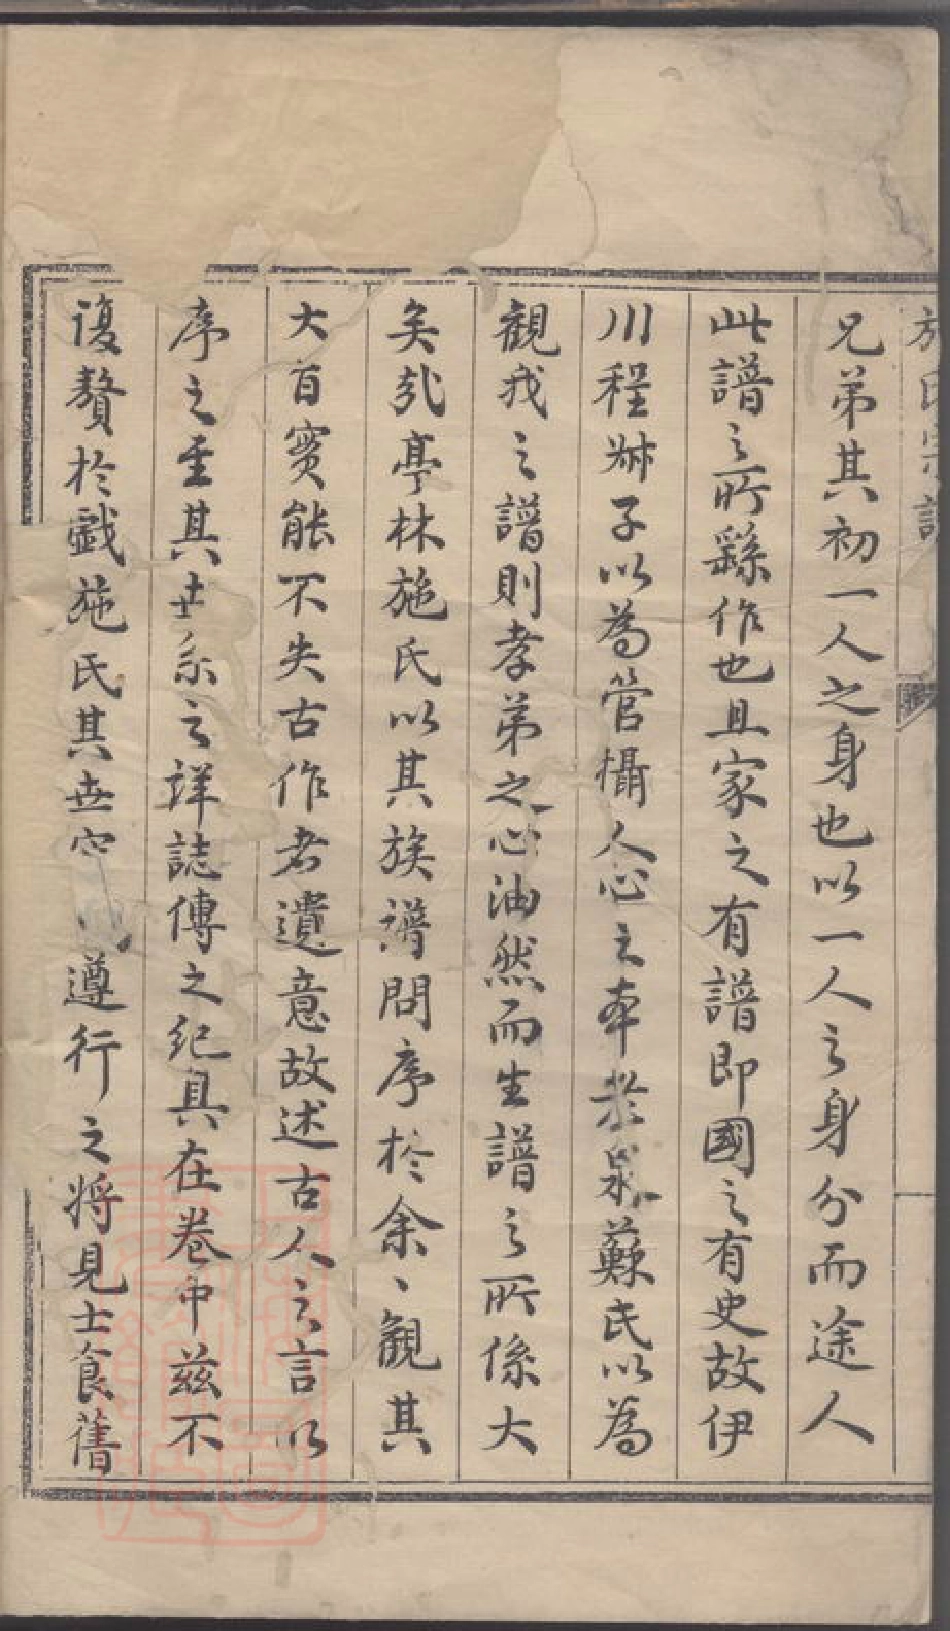 施氏宗譜
兄弟其初一人之身也以一人之身分而途人
此譜之所繇作也且家之有譜即國之有史故伊
川程叔子以為管攝人心之本老泉蘇氏以為
觀我之譜則孝弟之心油然而生譜之所係大
矣孔亭林施氏以其族譜問序於余〻觀其
大旨實能不失古作者遺意故述古人之言以
序之至其世系之詳誌傳之紀具在卷中茲不
復贅於戲施氏其世守 遵行之將見士食舊